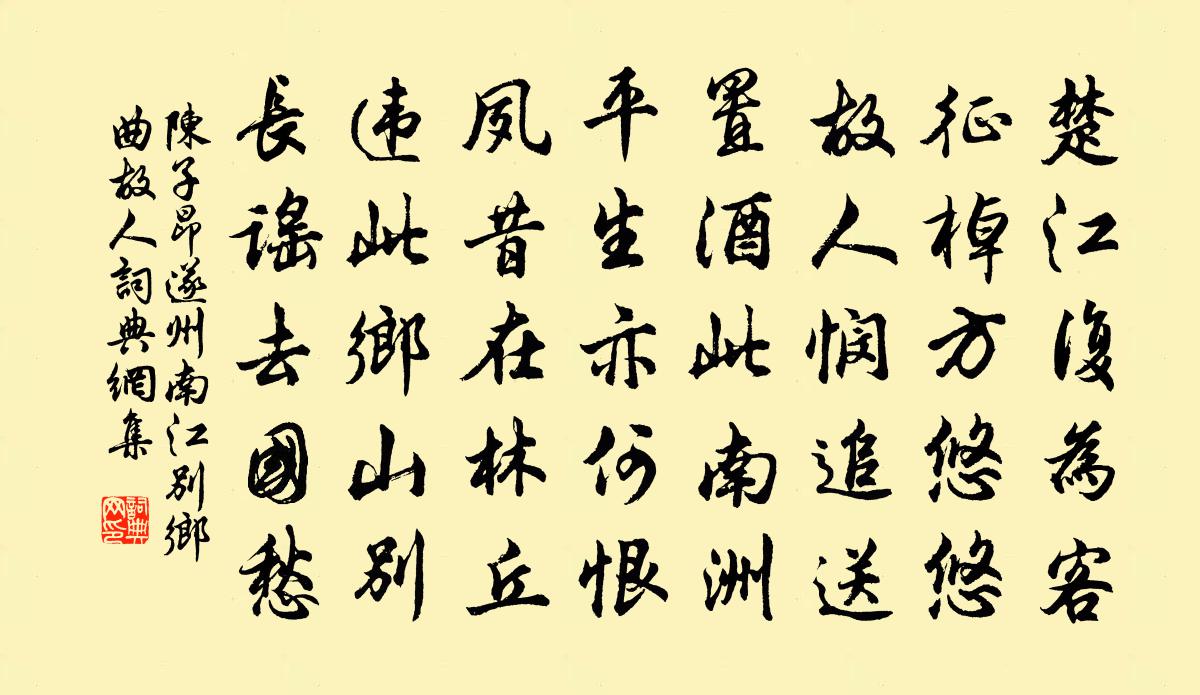 楚江復為客
征棹方悠悠
故人憫追送
置酒此南洲
平生亦何恨
夙昔在林丘
違此鄉山別
長謠去國愁
陳子昂遂州南江別鄉
曲故人詞典網集
詞典
网印